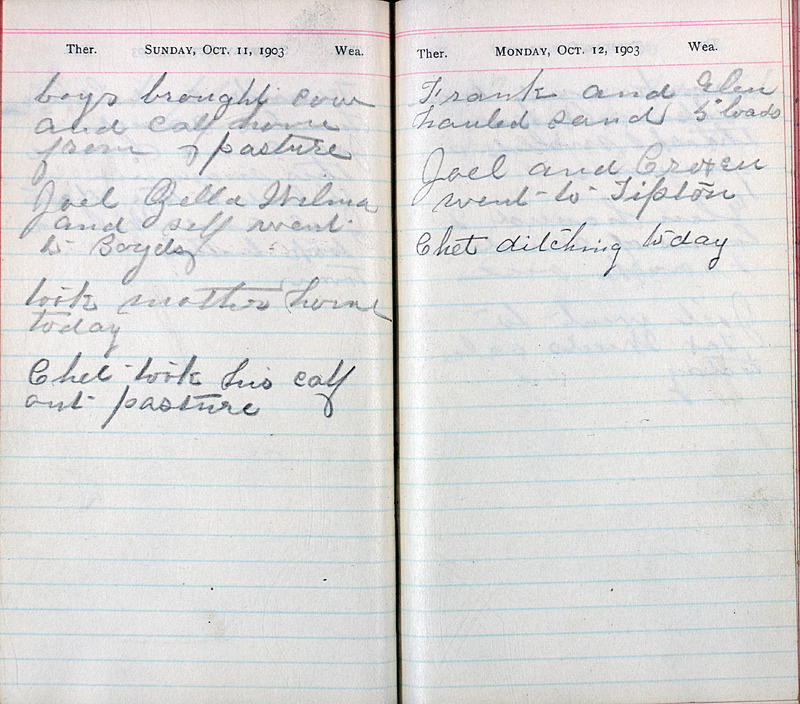 Ther. Sunday, Oct. 11, 1903 Wea.
boys brought cow
and calf home
from pasture
Joel Zella Wilma
and self went
to Boyds
took mother home
today
Chet took his calf
out pasture
Ther. Monday, Oct. 12, 1903 Wea.
Frank and Glen
hauled sand 5 loads
Joel and Croxen
went to Tipton
Chet ditching today